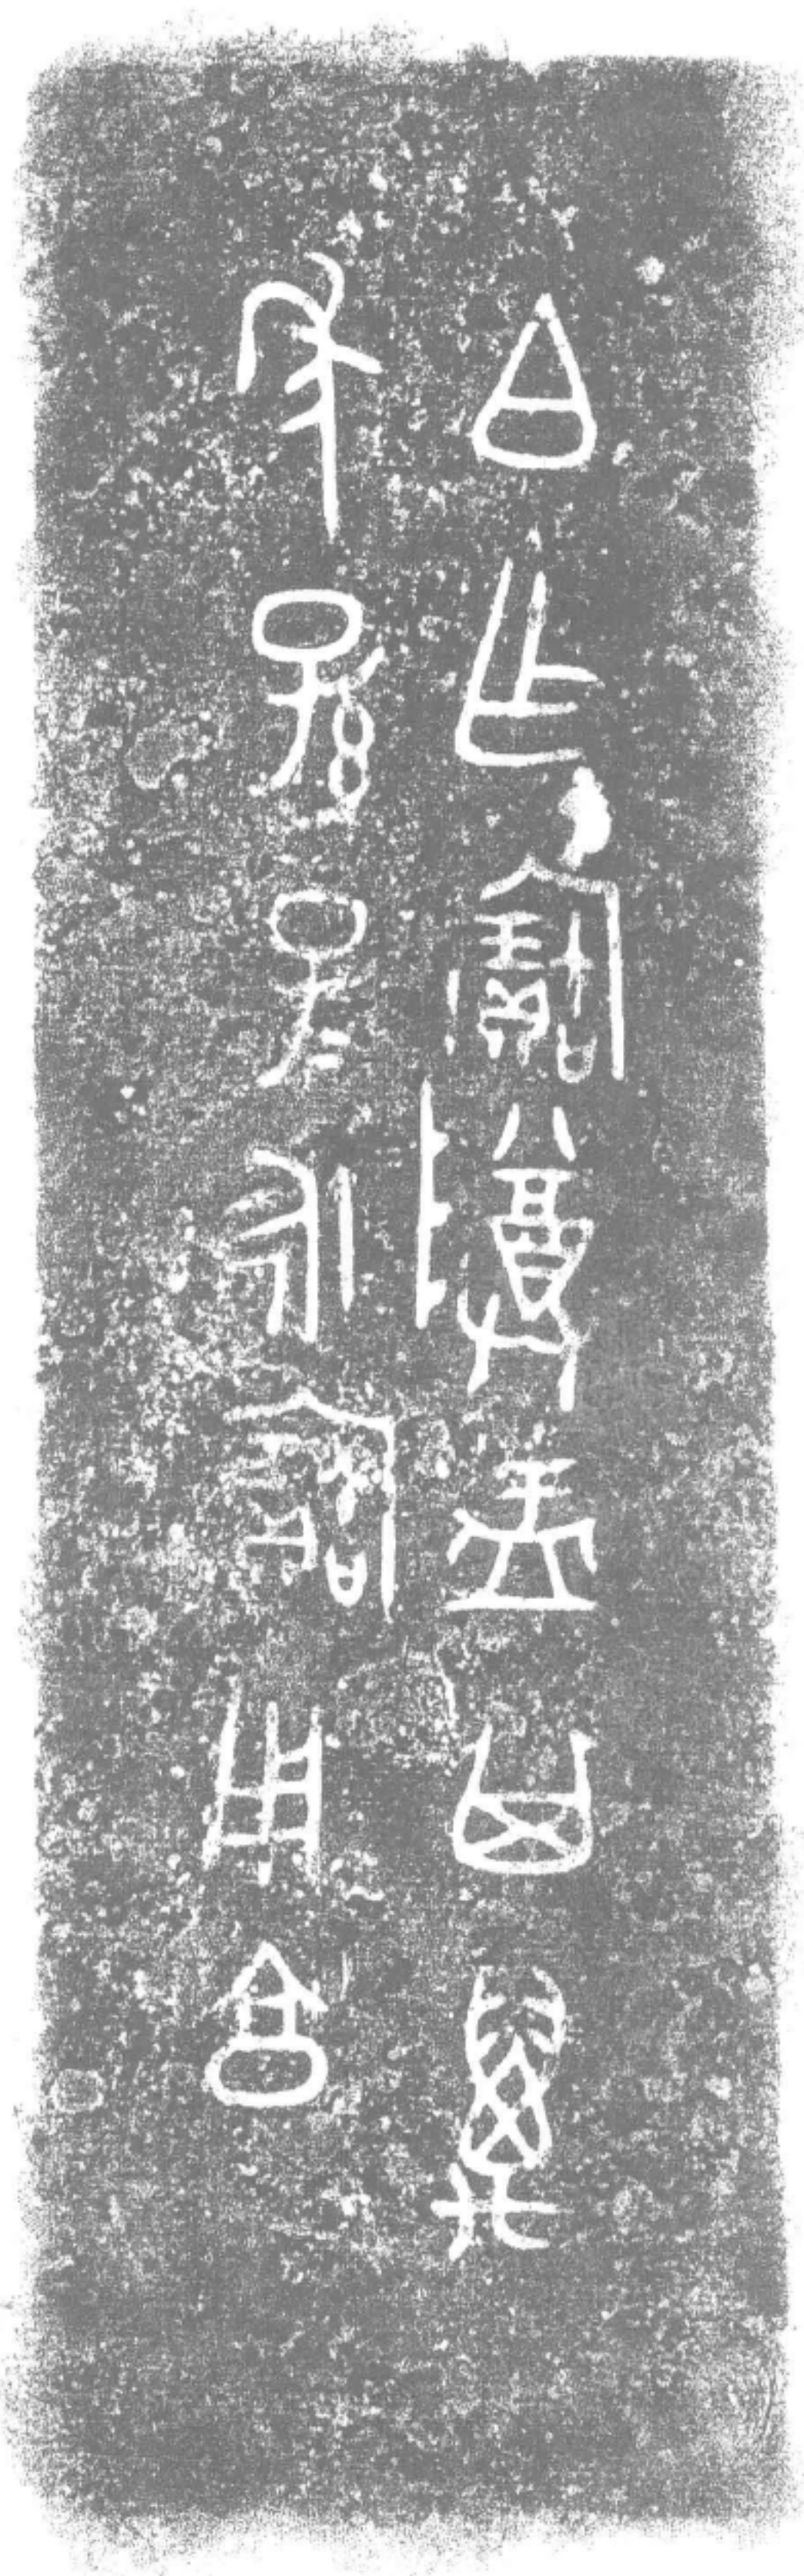 白乍寶尊盂其萬
年孫孫子子永寶用享